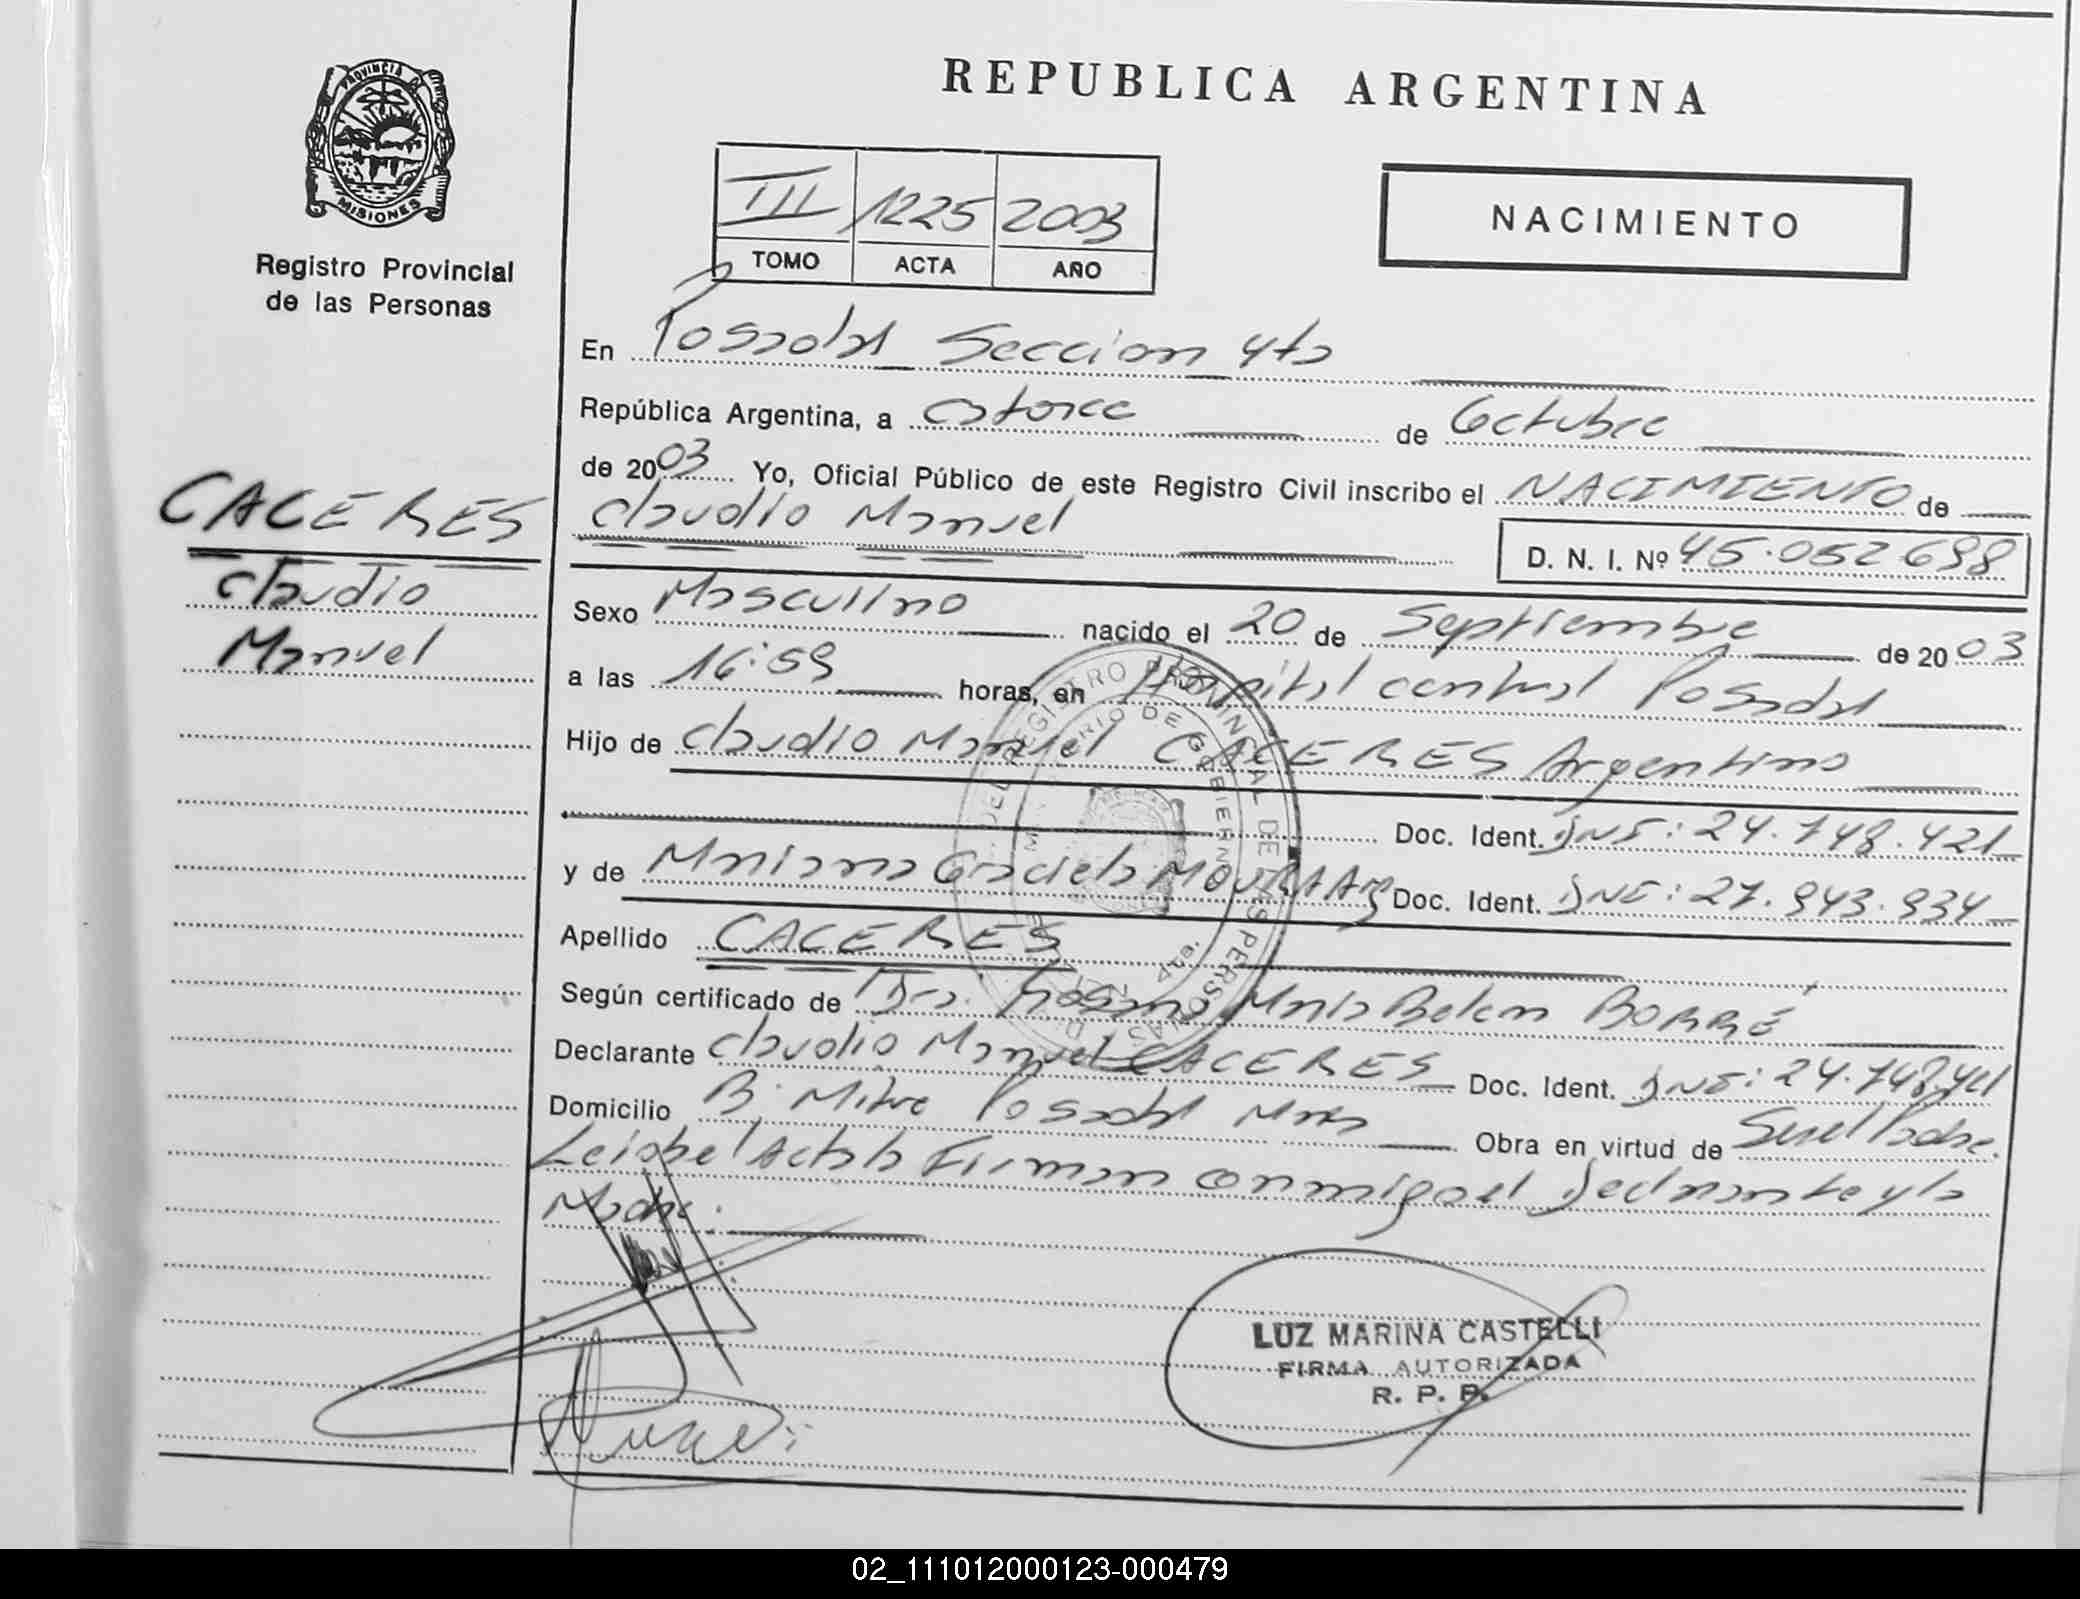 REPUBLICA ARGENTINA
PROVINCIA DE
MISIONES
Registro Provincial
de las Personas
III 1225 2003
TOMO ACTA AÑO
NACIMIENTO
En Posadas Seccion 4ta
República Argentina, a catorce de Octubre
de 2003 Yo, Oficial Público de este Registro Civil inscribo el NACIMIENTO de
Claudio Manuel D. N. I. Nº 45.052.698
CACERES
Claudio
Manuel
Sexo Masculino nacido el 20 de Septiembre de 2003
a las 16:59 horas, en Hospital central Posadas
Hijo de Claudio Manuel CACERES Argentino
Doc. Ident. DNI: 24.748.421
y de Mariana Graciela Doc. Ident. DNI: 27.943.934
Apellido CACERES
Según certificado de Dra. Maria Belen BORRÉ
Declarante Claudio Manuel CACERES Doc. Ident. DNI: 24.748.421
Domicilio B. Mitre Posadas Mnes Obra en virtud de Ser el Padre.
Leida el Acta la Firman conmigo el declarante y la
Madre.
REGISTRO PROVINCIAL DE LAS PERSONAS
MINISTERIO DE GOBIERNO
LUZ MARINA CASTELLI
FIRMA AUTORIZADA
R. P. P.
02_111012000123-000479